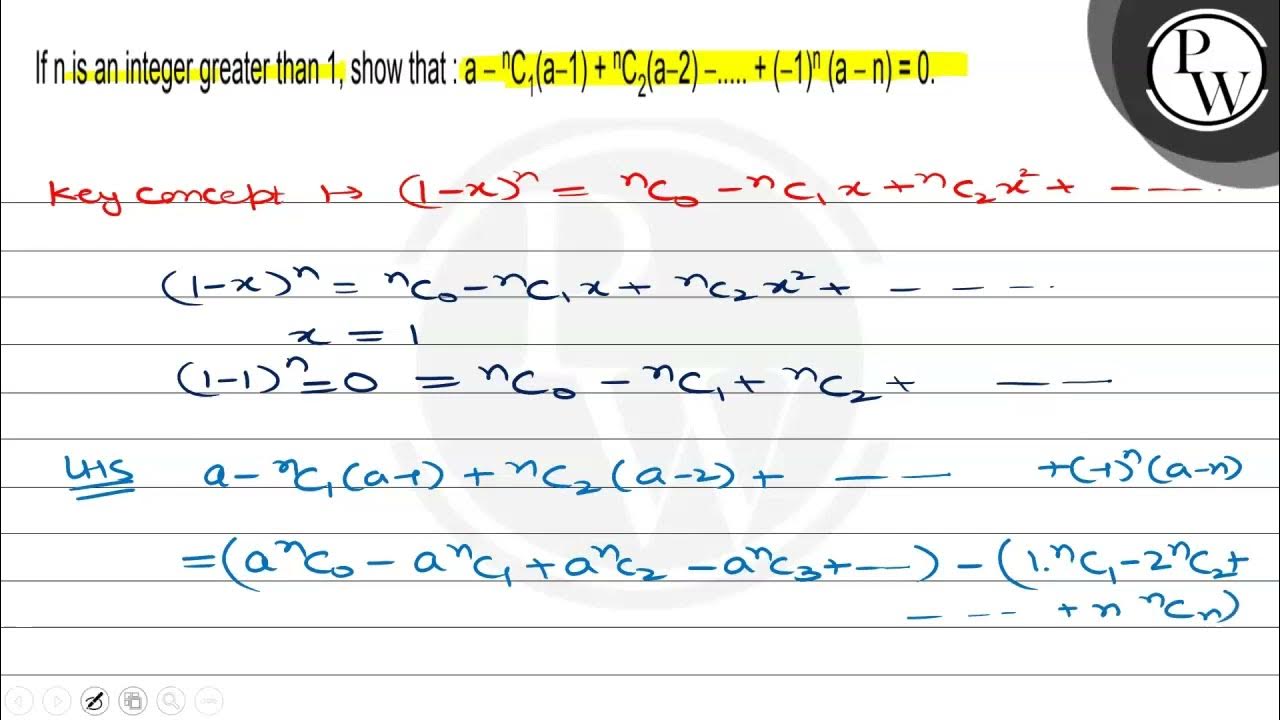 If n is an integer greater than 1, show that : a – ⁿC₁(a–1) + ⁿC₂(a–2) –..... + (–1)ⁿ (a – n) = 0.
PW
Key concept ↦ (1-x)ⁿ = ⁿC₀ - ⁿC₁x + ⁿC₂x² + - - - - .
(1-x)ⁿ = ⁿC₀ - ⁿC₁x + ⁿC₂x² + - - - - -
x = 1
(1-1)ⁿ = 0 = ⁿC₀ - ⁿC₁ + ⁿC₂ + — —
LHS a - ⁿC₁(a-1) + ⁿC₂(a-2) + — — + (-1)ⁿ(a-n)
= (aⁿC₀ - aⁿC₁ + aⁿC₂ - aⁿC₃ + — –) - (1.ⁿC₁ - 2ⁿC₂ +
- - - - + n ⁿCₙ)